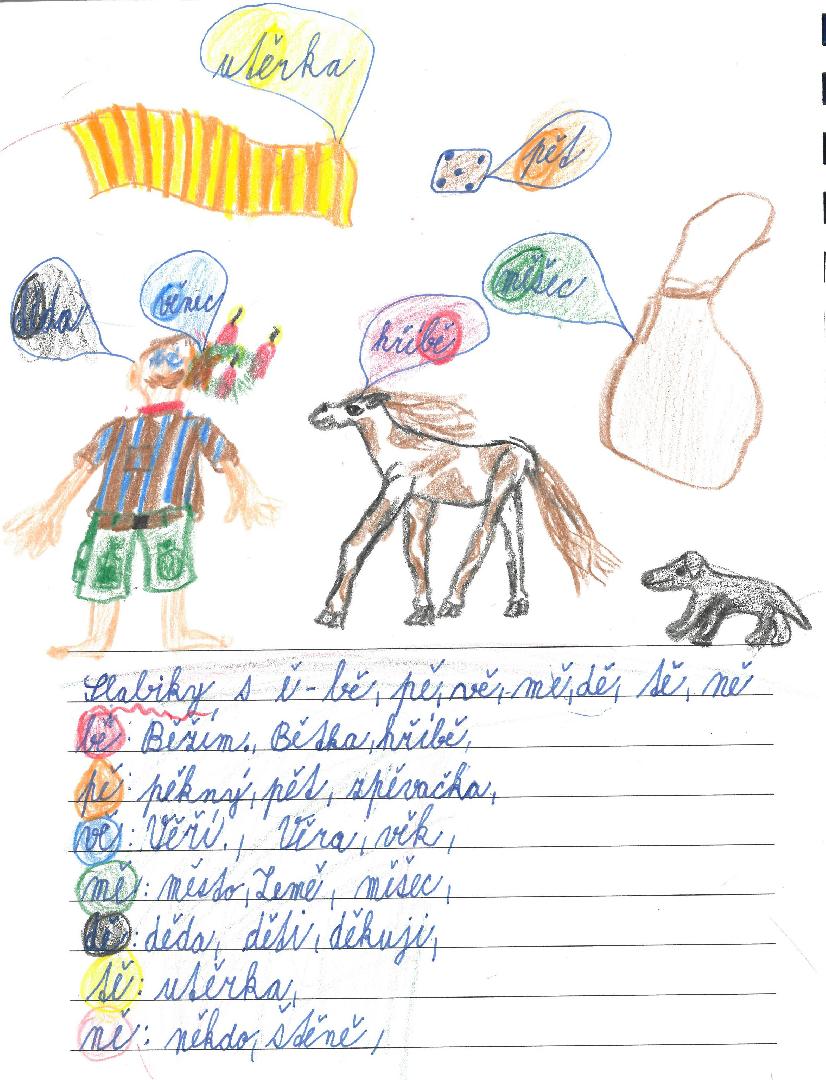 utěrka
pět
děda
věnec
hříbě
měšec
Slabiky s ě - bě, pě, vě, mě, dě, tě, ně
bě: Běžím., Bětka, hříbě,
pě: pěkný, pět, zpěvačka,
vě: Věří., Věra, věk,
mě: město, Země, měšec,
dě: děda, děti, děkuji,
tě: utěrka,
ně: někdo, štěně,